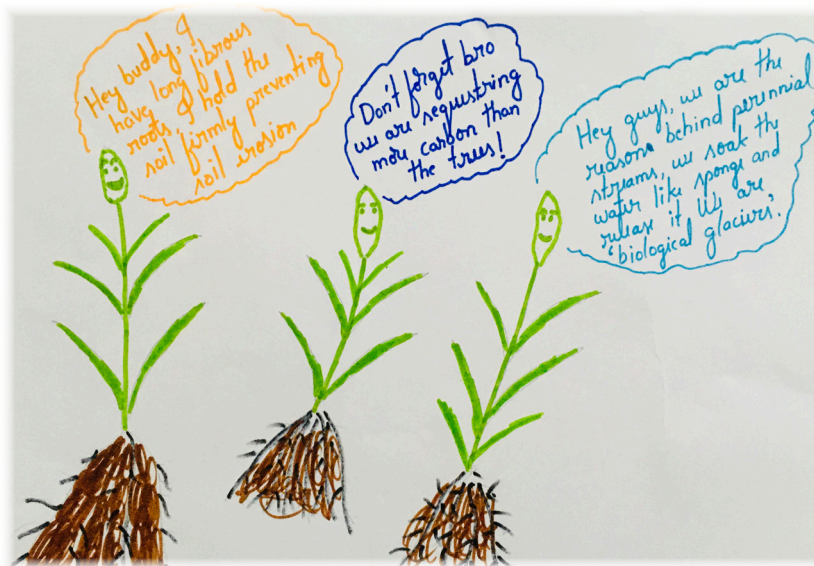 Hey buddy, I
have long fibrous
roots & hold the
soil firmly preventing
soil erosion
Don't forget bro
we are sequestring
more carbon than
the trees!
Hey guys, we are the
reasons behind perennial
streams, we soak the
water like sponge and
release it We are
'biological glaciers'.